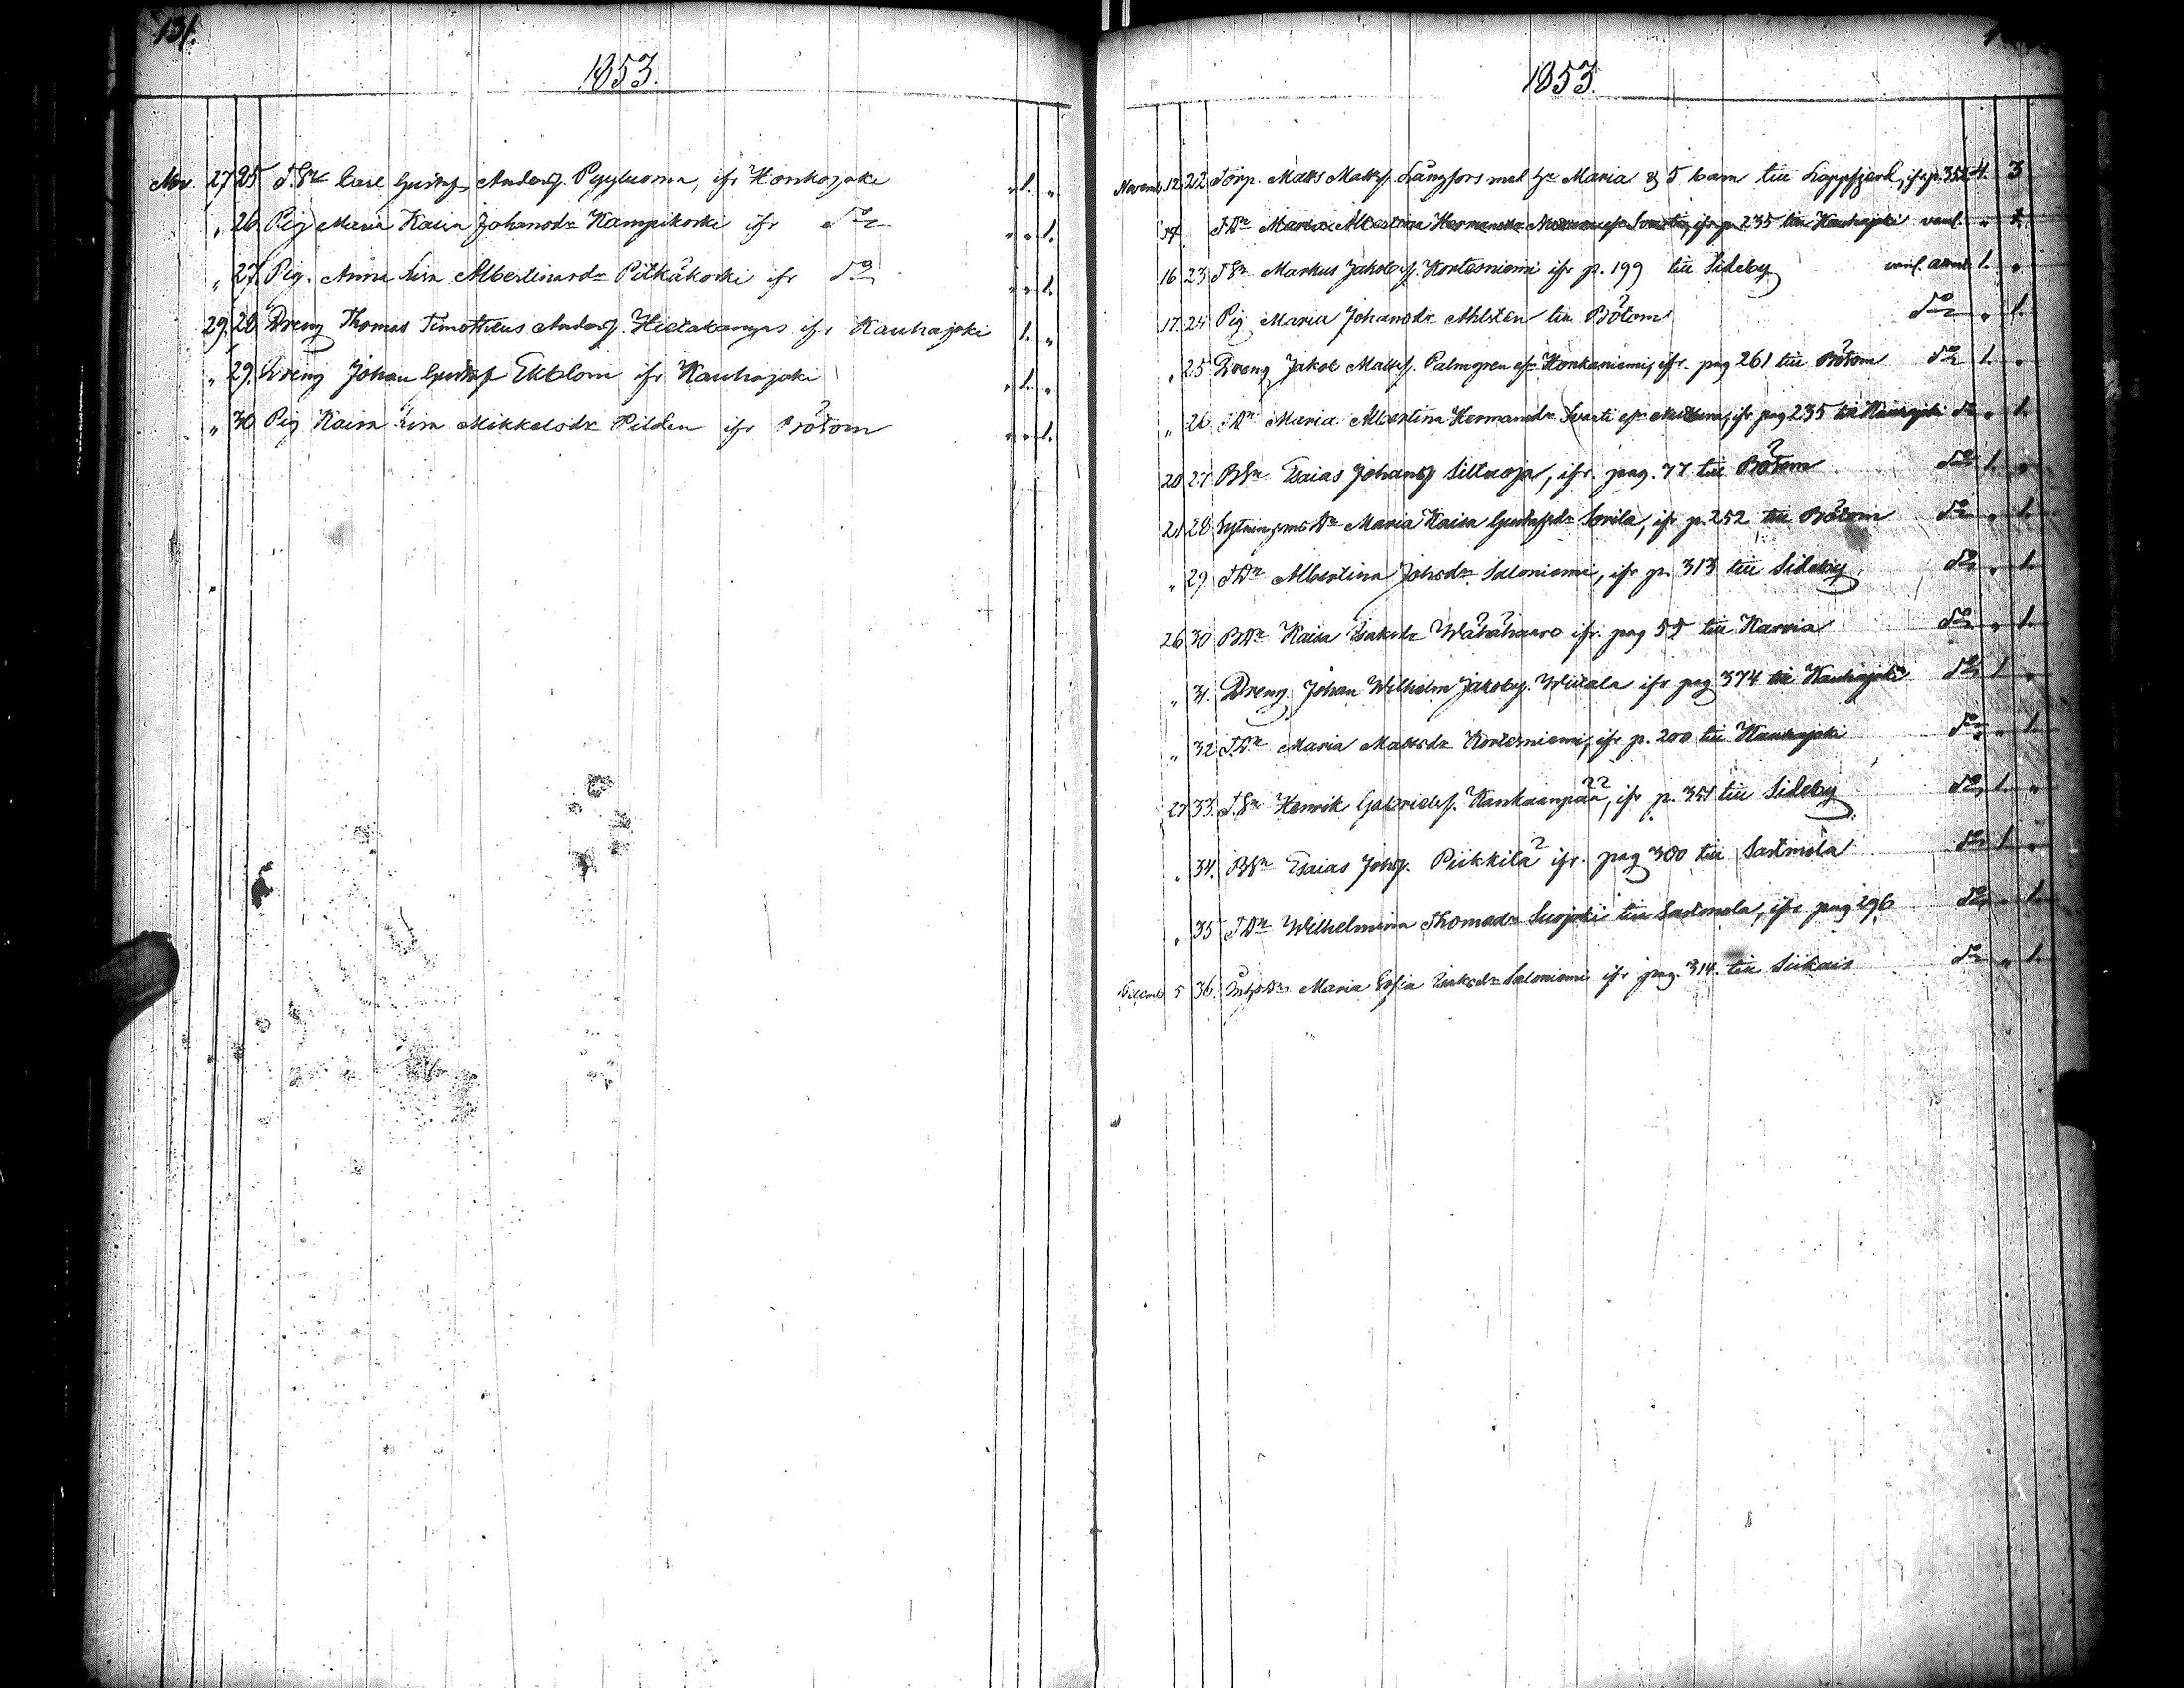 131.
1853.
Nov. 27 25 T.Sn Carl Gustaf Andersf. Pyyluoma, ifr Honkajoki " 1. "
" 26 Pig Maria Kaisa Johansdr Kampikoski ifr do " " 1.
" 27. Pig. Anna Lisa Albertinasdr Pitkäkoski ifr do " " 1.
29. 28 Dreng Thomas Timotheus Andersf. Hietakangas ifr Kauhajoki 1. "
" 29. Dreng Johan Gustaf Ekblom ifr Kauhajoki " 1. "
" 30 Pig Kaisa Lisa Mikkelsdr Pilden ifr Bötom " " 1.
1853.
Novemb 12 22 Torp. Matts Mattsf. Långfors med h. Maria & 5 barn till Lappfjerd, ifr p. 352 4. 3
14 TDr Maria Albertina Hermansdr ifr p. 235 till Kauhajoki " 1.
16 23 TSn Markus Jakobsf. Kortesniemi ifr p. 199 till Sideby 1. "
17 24 Pig Maria Johansdr Ahlsten till Bötom do " 1.
" 25 Dreng Jakob Mattsf. Palmgren Honkaniemi, ifr. pag 261 till Bötom do 1. "
" 26 TDr Maria Albertina Hermansdr Svarti ifr pag 235 till Kauhajoki do " 1.
20 27 BSn Esaias Johansf Siltaoja, ifr. pag. 77 till Bötom do 1. "
21 28 Dr Maria Kaisa Gustafsdr Sorila, ifr p. 252 till Bötom do " 1.
" 29 TDr Albertina Johsdr Saloniemi, ifr p. 313 till Sideby do " 1.
26 30 BDr Kaisa Isaksdr Wähähaaro ifr. pag 55 till Karvia do " 1.
" 31. Dreng Johan Wilhelm Jakobsf. Wiitala ifr pag 374 till Kauhajoki do 1 "
" 32 TDr Maria Mattsdr Kortesniemi, ifr p. 200 till Kauhajoki do " 1.
27 33. T.Sn Henrik Gabrielsf. Kankaanpää, ifr p. 351 till Sideby do 1. "
" 34. BSn Esaias Johsf. Piikkilä ifr. pag 300 till Sastmola do 1 "
" 35 TDr Wilhelmina Thomasdr Suojoki till Sastmola, ifr pag 296 do " 1.
Decemb 5 36. Maria Sofia Isaksdr Saloniemi ifr pag. 314 till Siikais do " 1.